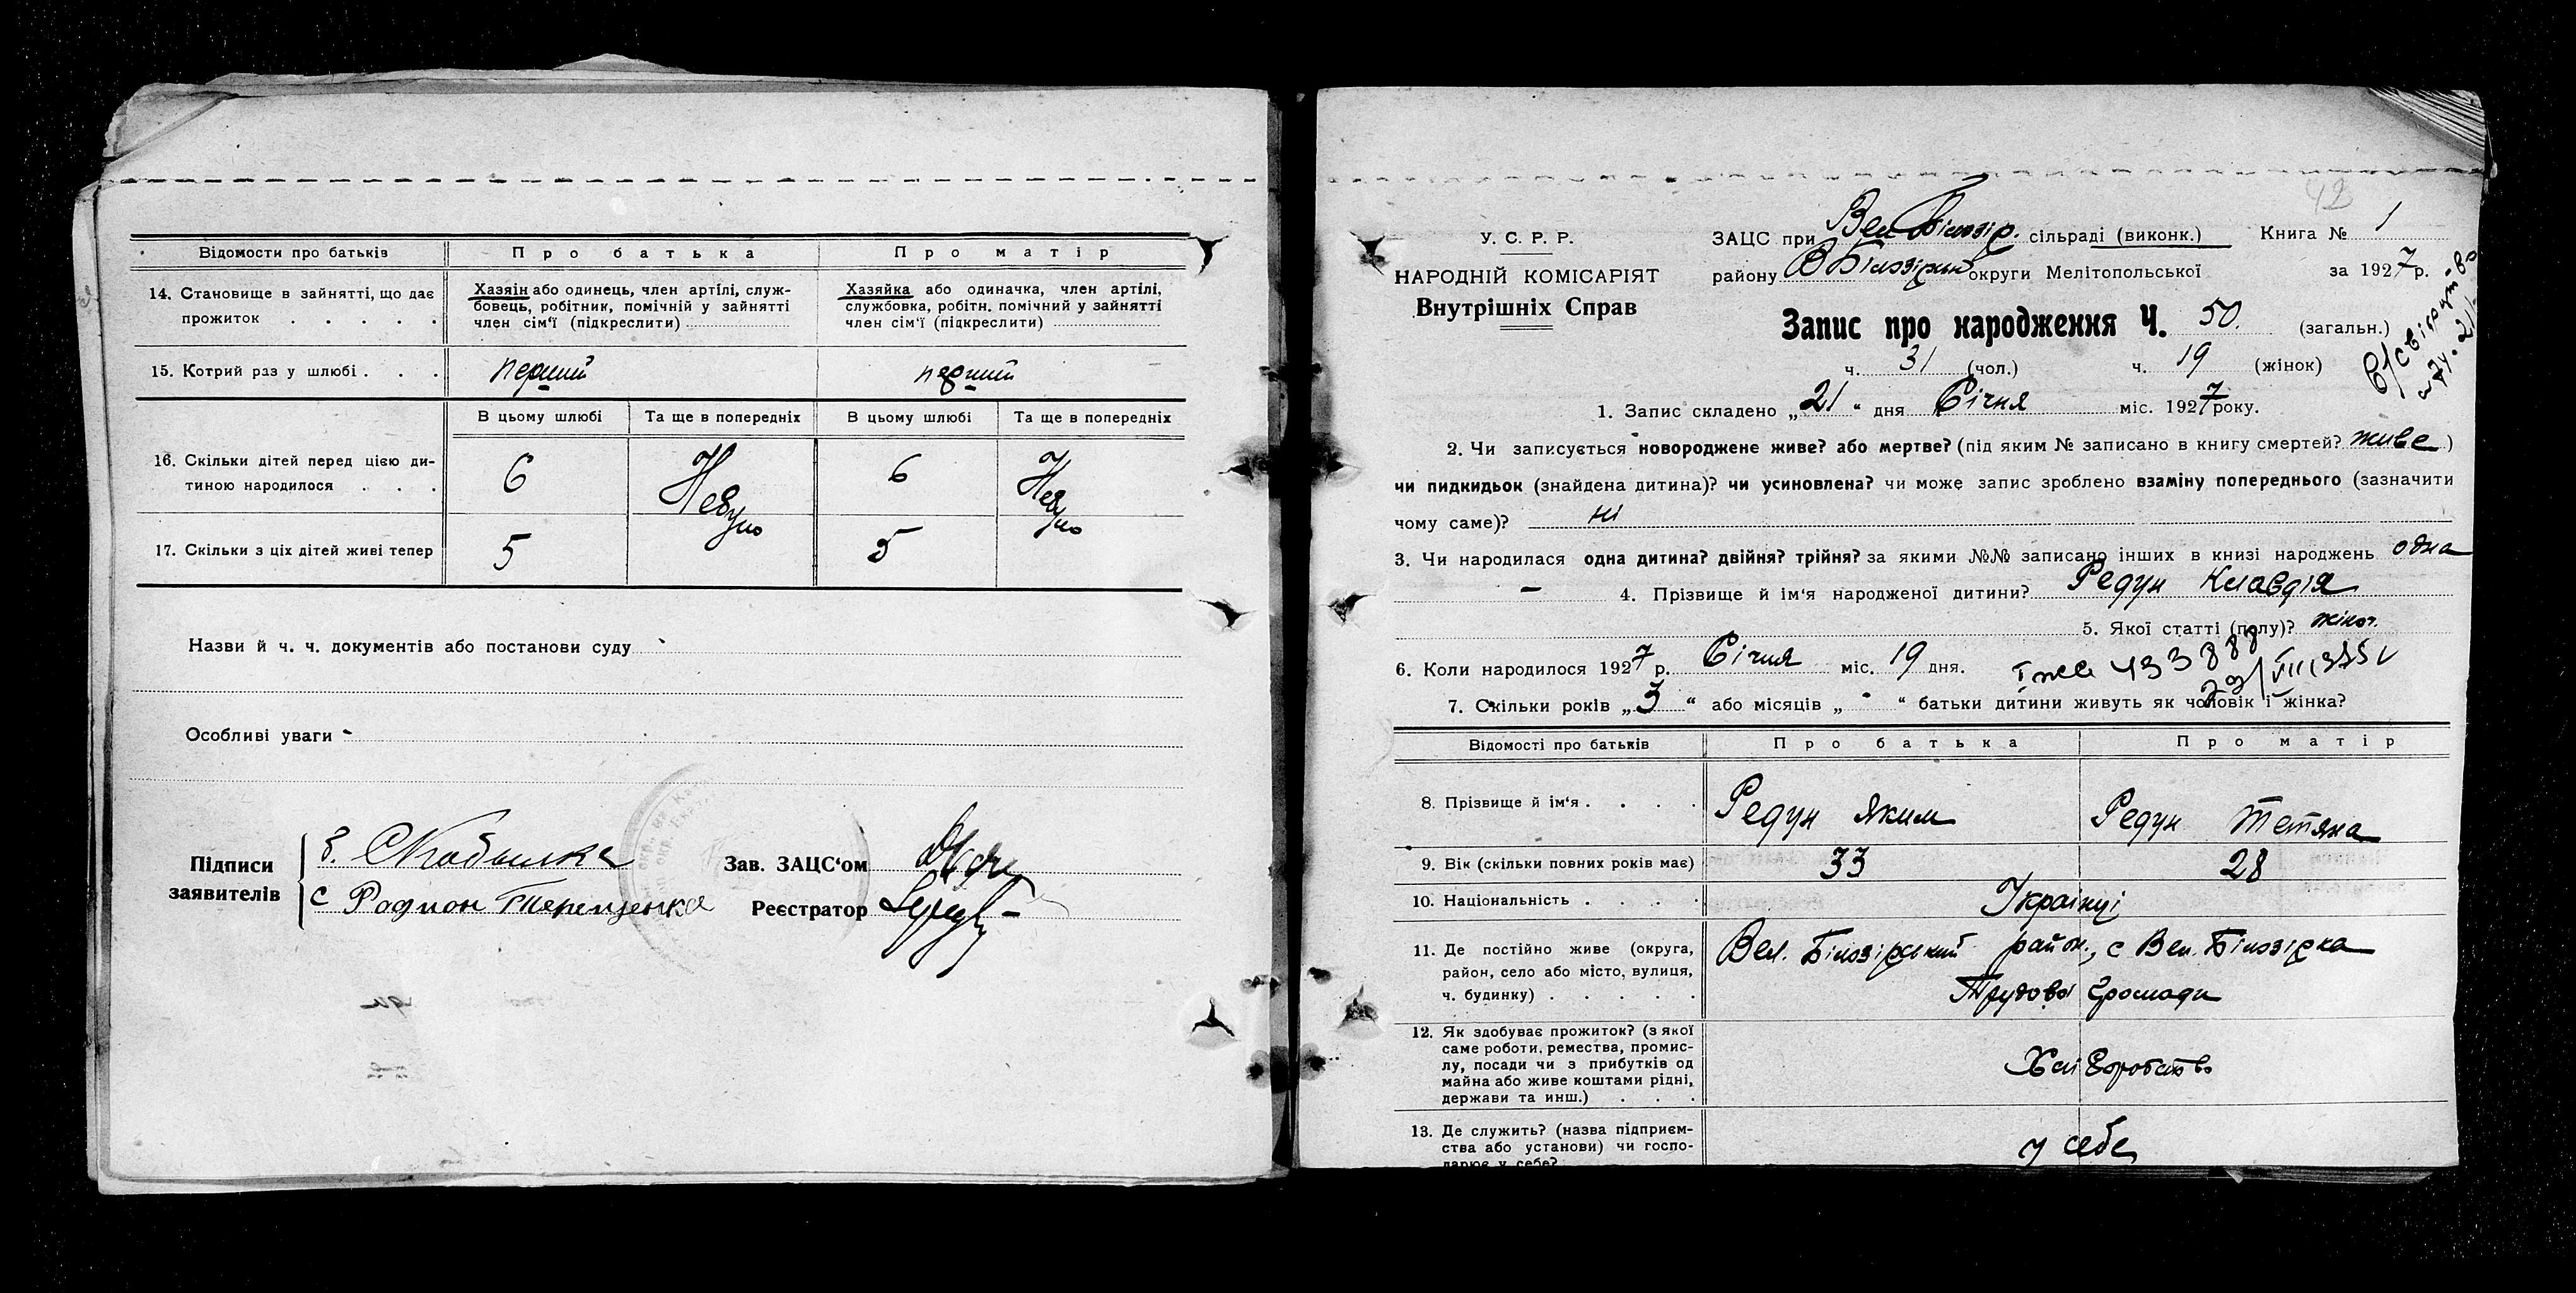 Відомости про батьків
Про батька
Про матір
14. Становище в зайнятті, що дає прожиток . . . . .
Хазяін або одинець, член артілі, служ-
бовець, робітник, помічній у зайнятті
член сім'ї (підкреслити)
Хазяйка або одиначка, член артілі,
службовка, робітн. помічний у зайнятті
член сім'ї (підкреслити)
15. Котрий раз у шлюбі . . .
перший
перший
В цьому шлюбі
Та ще в попередніх
В цьому шлюбі
Та ще в попередніх
16. Скільки дітей перед цією ди-
тиною народилося . . .
6
Небуло
6
Небуло
17. Скільки з ціх дітей живі тепер
5
5
Назви й ч. ч. документів або постанови суду
Особливі уваги -
Підписи
заявителів
с Родион Терещенко
Зав. ЗАЦС'ом
Реєстратор
42
У. С. Р. Р.
НАРОДНІЙ КОМІСАРІЯТ
Внутрішніх Справ
ЗАЦС при Вел Білозір. сільраді (виконк.) Книга № 1
району В Білозірськ округи Мелітопольської за 1927 р.
Запис про народження Ч. 50. (загальн.)
ч. 31 (чол.) ч. 19 (жінок)
1. Запис складено „21" дня Січня міс. 1927 року.
2. Чи записується новороджене живе? або мертве? (під яким № записано в книгу смертей? живе)
чи пидкидьок (знайдена дитина)? чи усиновлена? чи може запис зроблено взаміну попереднього (зазначити
чому саме)? ні
3. Чи народилася одна дитина? двійня? трійня? за якими №№ записано інших в книзі народжень одна
- 4. Прізвище й ім'я народженої дитини? Редун Клавдія
5. Якої статті (полу)? жіноч.
6. Коли народилося 1927 р. Січня міс. 19 дня.
7. Скільки років „3" або місяців „-" батьки дитини живуть як чоловік і жінка?
Відомості про батьків
Про батька
Про матір
8. Прізвище й ім'я . . . .
Редун Яким
Редун Тетяна
9. Вік (скільки повних років має)
33
28
10. Національність . . . .
Українці
11. Де постійно живе (округа,
район, село або місто, вулиця,
ч. будинку) . . . . .
Вел. Білозірський район, с Вел. Білозірка
Трудової Громади
12. Як здобуває прожиток? (з якої
саме роботи, ремества, промис-
лу, посади чи з прибутків од
майна або живе коштами рідні,
держави та инш.) . . .
Хліборобство
13. Де служить? (назва підприєм-
ства або установи) чи госпо-
дарює у себе?
у себе